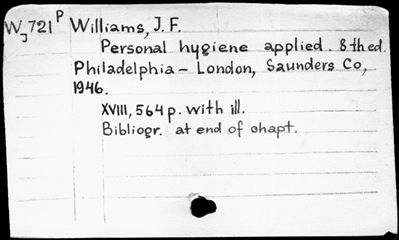 WJ721P Williams, J. F.
Personal hygiene applied. 8th ed.
Philadelphia – London, Saunders Co,
1946.
XVIII, 564 p. with ill.
Bibliogr. at end of chapt.